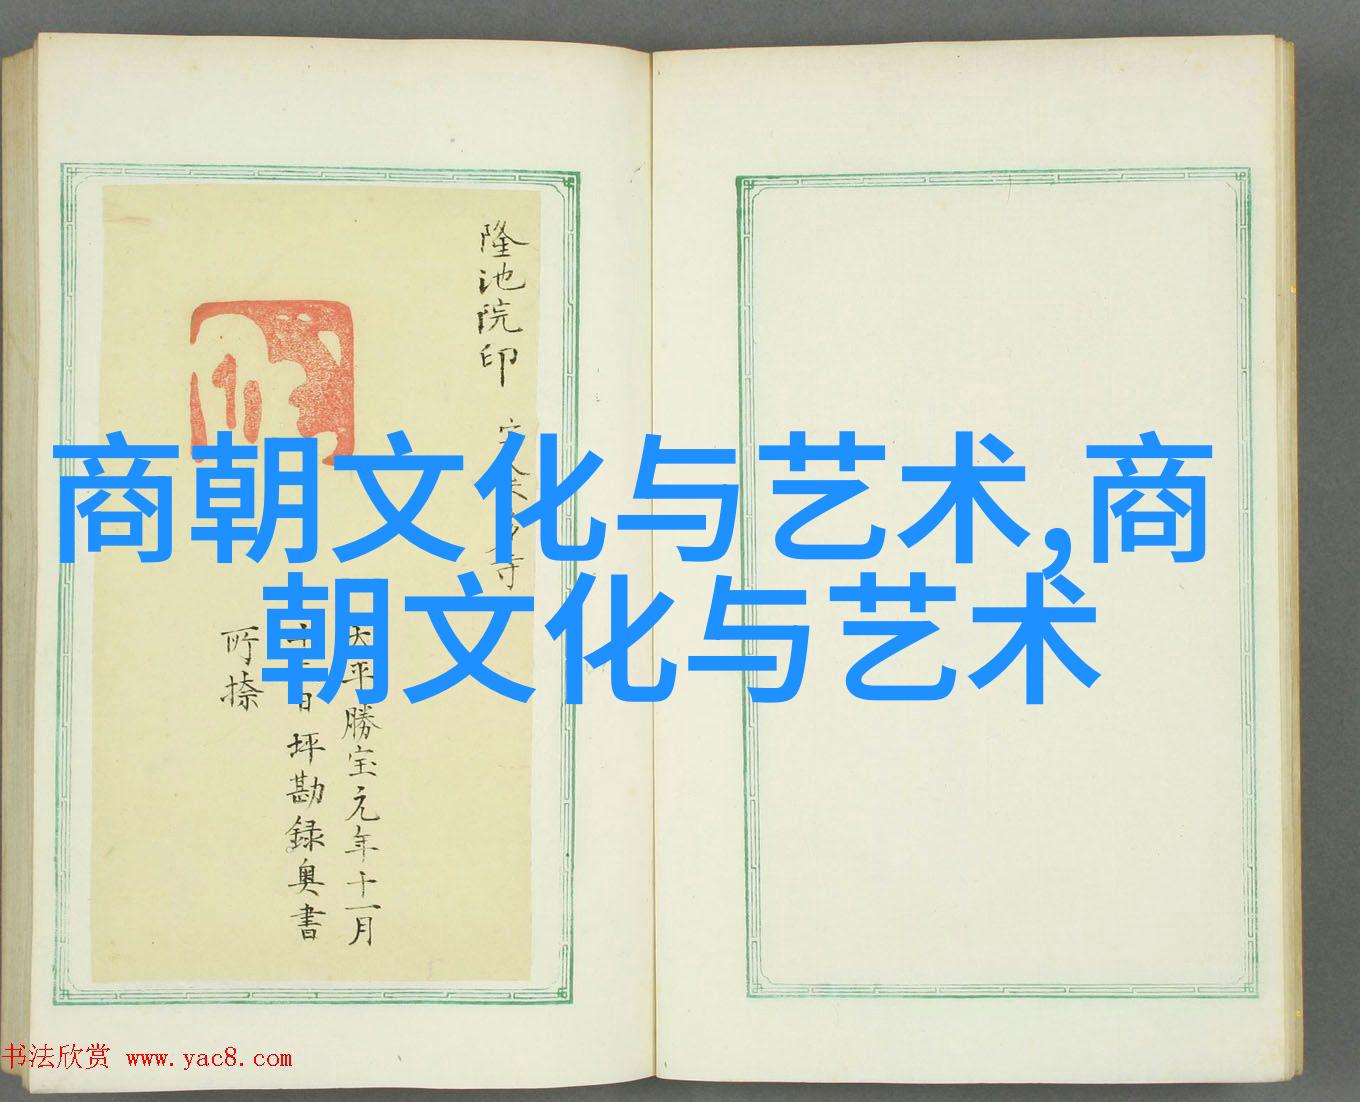 隆池院印
商朝文化与艺术,商
朝文化与艺术
勝宝元年十一月
坪勘録奥書
所捺
书法欣赏 www.yac8.com